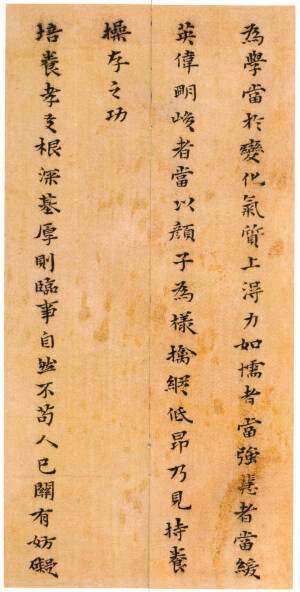 為學當於變化氣質上得力如懦者當強急者當緩
英偉明峻者當以顏子為樣擒縱低昂乃見持養
操存之功
培養孝友根深基厚則臨事自然不苟人己關有妨礙